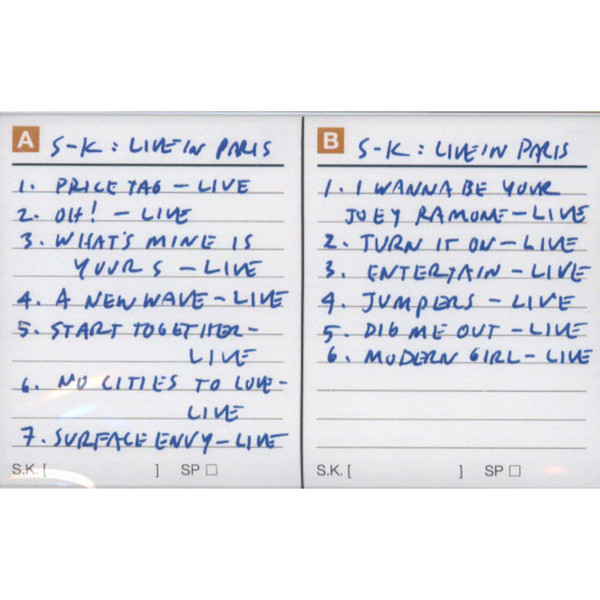 A S-K: LIVE IN PARIS
1. PRICE TAG - LIVE
2. OH! - LIVE
3. WHAT'S MINE IS
YOURS - LIVE
4. A NEW WAVE - LIVE
5. START TOGETHER -
LIVE
6. NO CITIES TO LOVE -
LIVE
7. SURFACE ENVY - LIVE
S.K. [ ] SP □
B S-K: LIVE IN PARIS
1. I WANNA BE YOUR
JOEY RAMONE - LIVE
2. TURN IT ON - LIVE
3. ENTERTAIN - LIVE
4. JUMPERS - LIVE
5. DIG ME OUT - LIVE
6. MODERN GIRL - LIVE
S.K. [ ] SP □